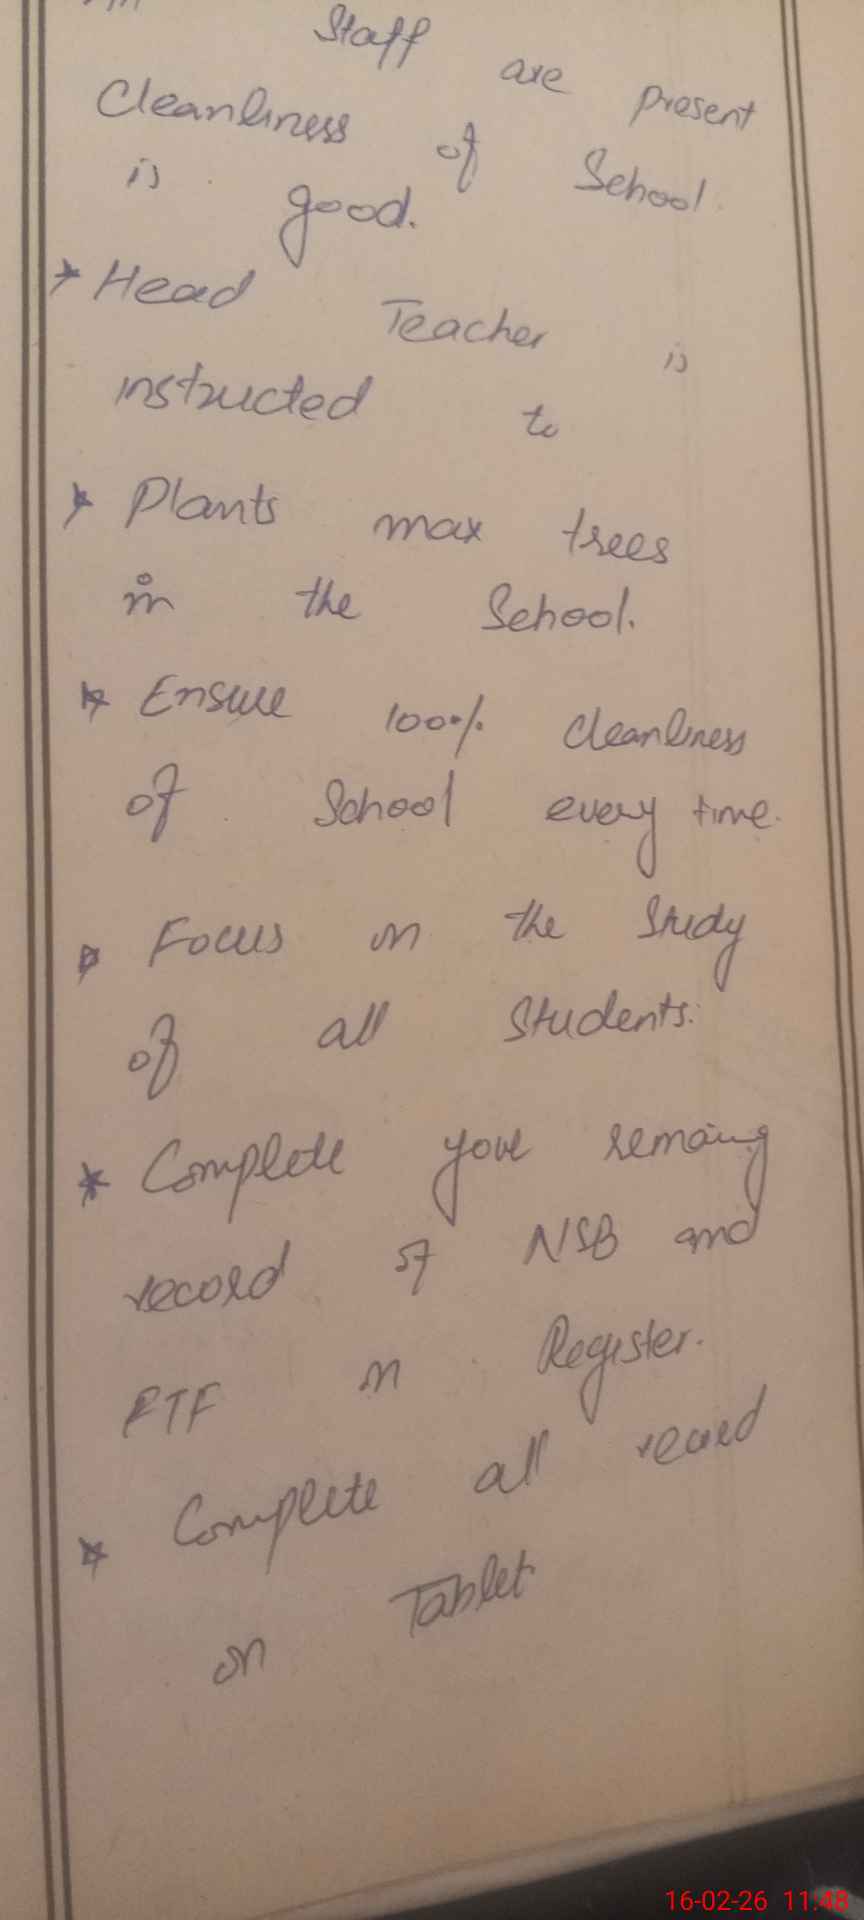 Staff are present
Cleanliness of School
is good.
* Head Teacher is
instructed to
* Plants max trees
in the School.
* Ensure 100% cleanliness
of School every time.
* Focus on the Study
of all Students.
* Complete your remaing
record of NSB and
FTF in Register.
* Complete all record
on Tablet
16-02-26 11:48